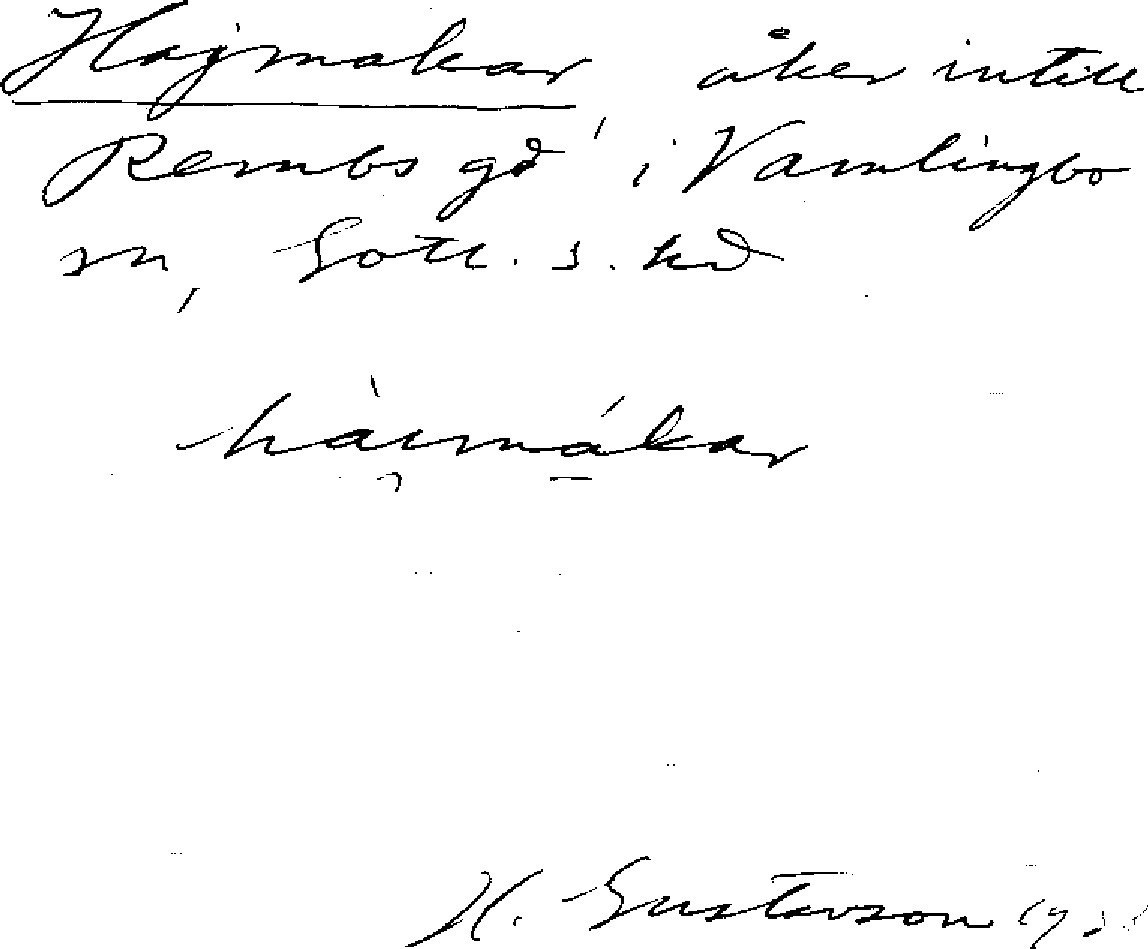 Hajmakar, åker intill
Rembs gd i Vamlingbo
sn, Gotl. s. hd
hàimákar
H. Gustavson